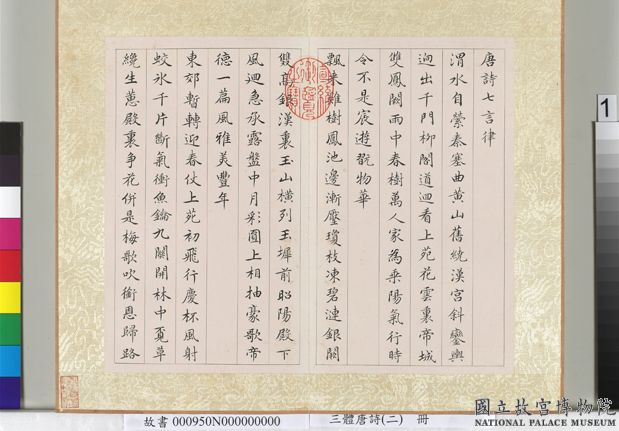 唐詩七言律
渭水自縈秦塞曲黃山舊繞漢宮斜鑾輿
迥出千門柳閣道迴看上苑花雲裏帝城
雙鳳闕雨中春樹萬人家為乘陽氣行時
令不是宸遊翫物華
飄來雞樹鳳池邊漸壓瓊枝凍碧漣銀闕
雙高銀漢裏玉山橫列玉墀前昭陽殿下
風迴急承露盤中月彩圓上相抽豪歌帝
德一篇風雅美豐年
東郊暫轉迎春仗上苑初飛行慶杯風射
蛟氷千片斷氣衝魚鑰九關開林中覓草
纔生蕙殿裏爭花併是梅歌吹銜恩歸路
1
故書 000950N000000000
三體唐詩(二) 冊
國立故宮博物院
NATIONAL PALACE MUSEUM